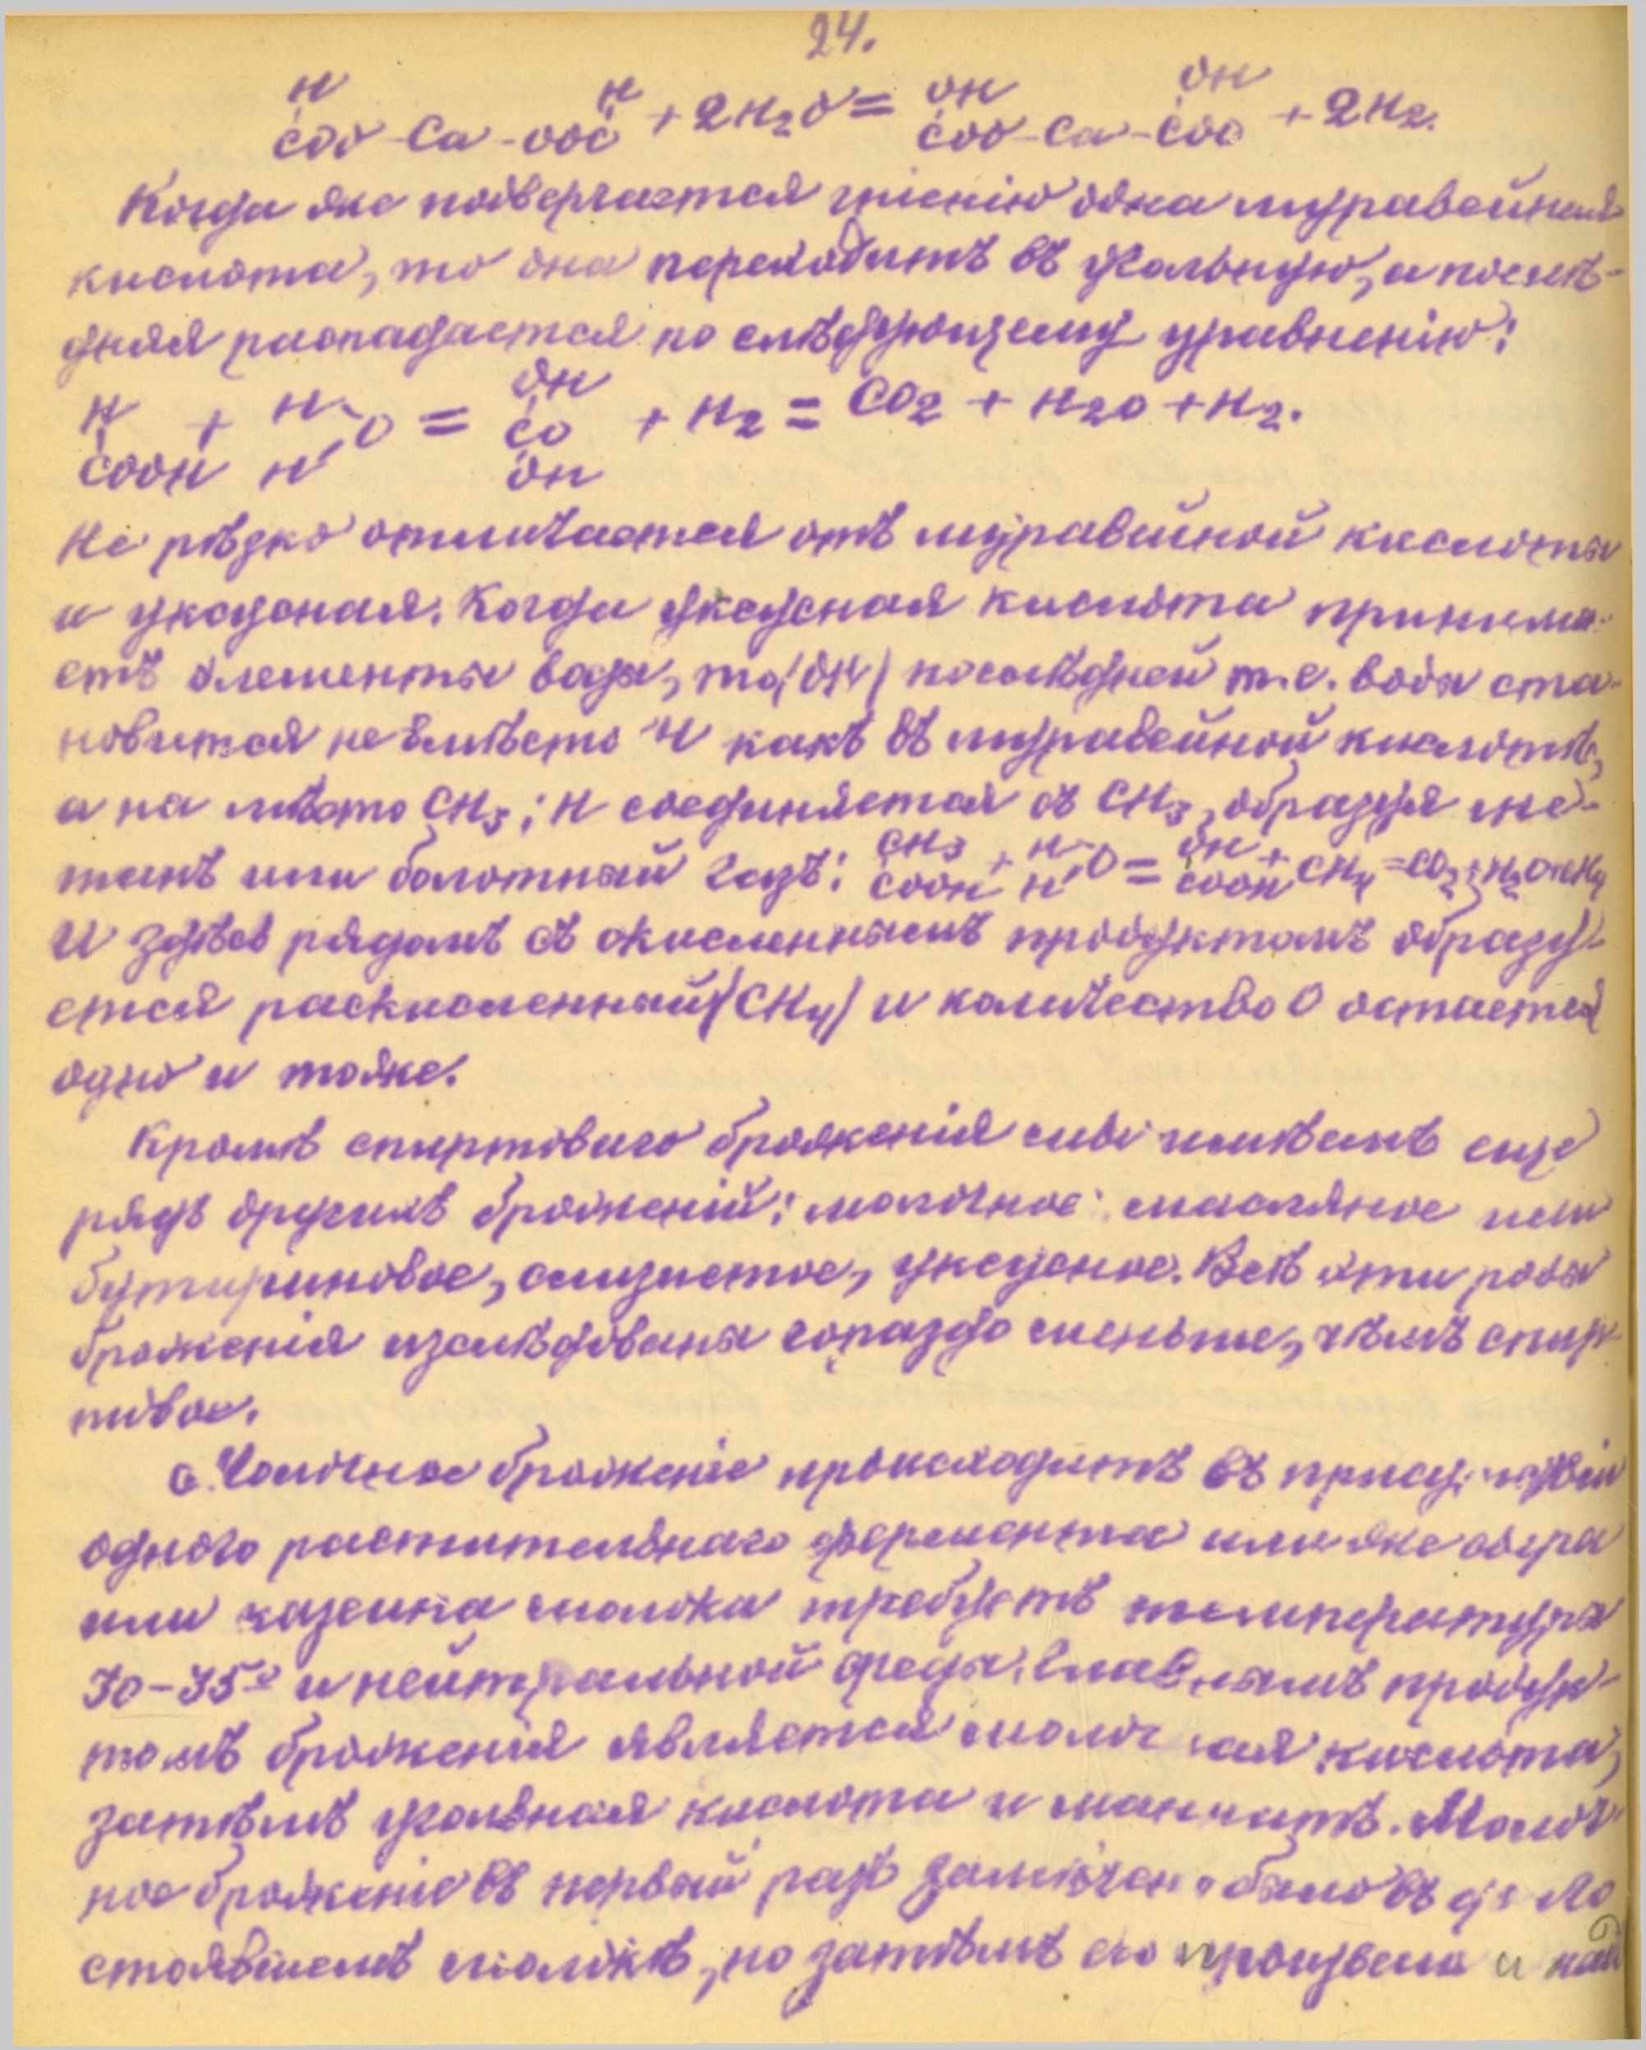 24.
H H OH OH
COO-Ca-OOC + 2H2O = COO-Ca-COO + 2H2.
Когда же подвергается гніенію одна муравейная
кислота, то она переходитъ въ угольную, а послѣ-
дняя распадается по слѣдующему уравненію:
H + H OH
COOH H O = CO + H2 = CO2 + H2O + H2.
OH
Не рѣзко отличается отъ муравейной кислоты
и уксусная. Когда уксусная кислота принима-
етъ элементы воды, то (OH) послѣдней т.е. воды ста-
новится не вмѣсто H какъ въ муравейной кислотѣ,
а на мѣсто CH3; H соединяется съ CH3, образуя ме-
танъ или болотный газъ: CH3 COOH + H H O = OH COOH + CH4 = CO2 + H2O + CH4
И здѣсь рядомъ съ окисленнымъ продуктомъ образу-
ется раскисленный (CH4) и количество O остается
одно и тоже.
Кромѣ спиртоваго броженія мы имѣемъ еще
рядъ другихъ броженій: молочное, масляное или
бутириновое, слизистое, уксусное. Всѣ эти роды
броженія изслѣдованы гораздо меньше, чѣмъ спир-
товое.
а. Молочное броженіе происходитъ въ присутствіи
одного растительнаго фермента или же сыра
или казеина молока требуетъ температуры
30-35° и нейтральной среды. Главнымъ продук-
томъ броженія является молочная кислота,
затѣмъ угольная кислота и маннитъ. Молоч-
ное броженіе въ первый разъ замѣчено было въ
стоявшемъ молокѣ, но затѣмъ его произвели и